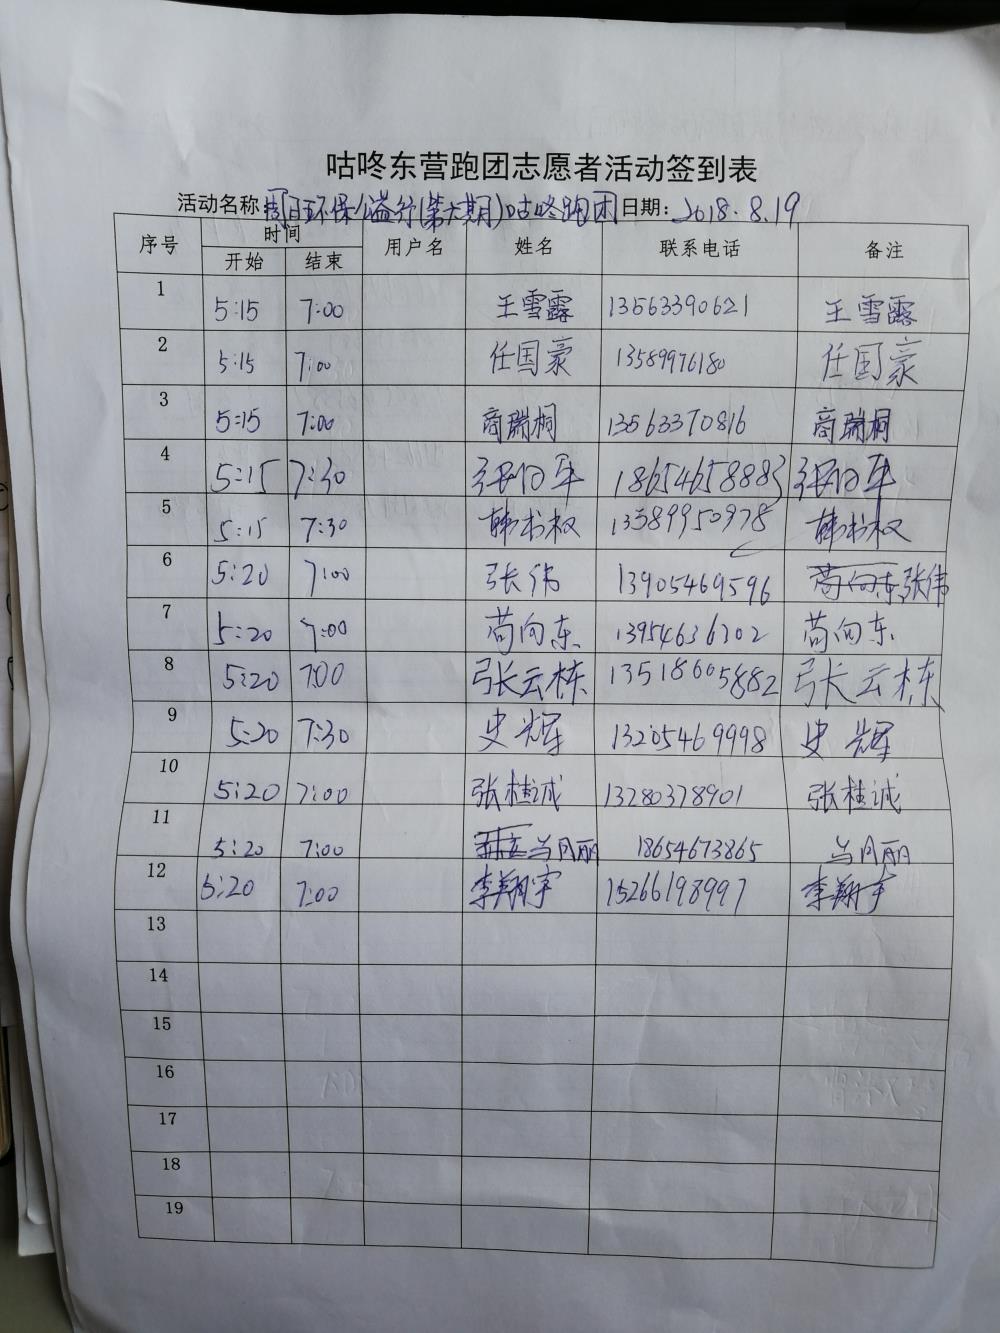 咕咚东营跑团志愿者活动签到表
活动名称:周日环保公益行(第六期)咕咚跑团 日期: 2018.8.19
序号 时间 用户名 姓名 联系电话 备注
开始 结束
1 5:15 7:00 王雪露 13563390621 王雪露
2 5:15 7:00 任国豪 13589976180 任国豪
3 5:15 7:00 商瑞桐 13563370816 商瑞桐
4 5:15 7:30 18654658883
5 5:15 7:30 韩书权 13589950978 韩书权
6 5:20 7:00 张伟 13905469596 苟向东 张伟
7 5:20 7:00 苟向东 13954636302 苟向东
8 5:20 7:00 张云栋 13518605882 张云栋
9 5:20 7:30 史辉 13205469998 史辉
10 5:20 7:00 张桂诚 13280378901 张桂诚
11 5:20 7:00 月丽 18654673865 月丽
12 5:20 7:00 李翔宇 15266198997 李翔宇
13
14
15
16
17
18
19